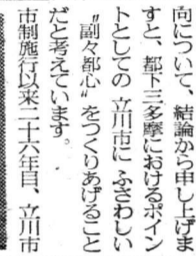 向について、結論から申し上げま
すと、都下三多摩におけるポイン
トとしての 立川市に ふさわしい
〝副々都心〟をつくりあげること
だと考えています。
市制施行以来二十六年目、立川市